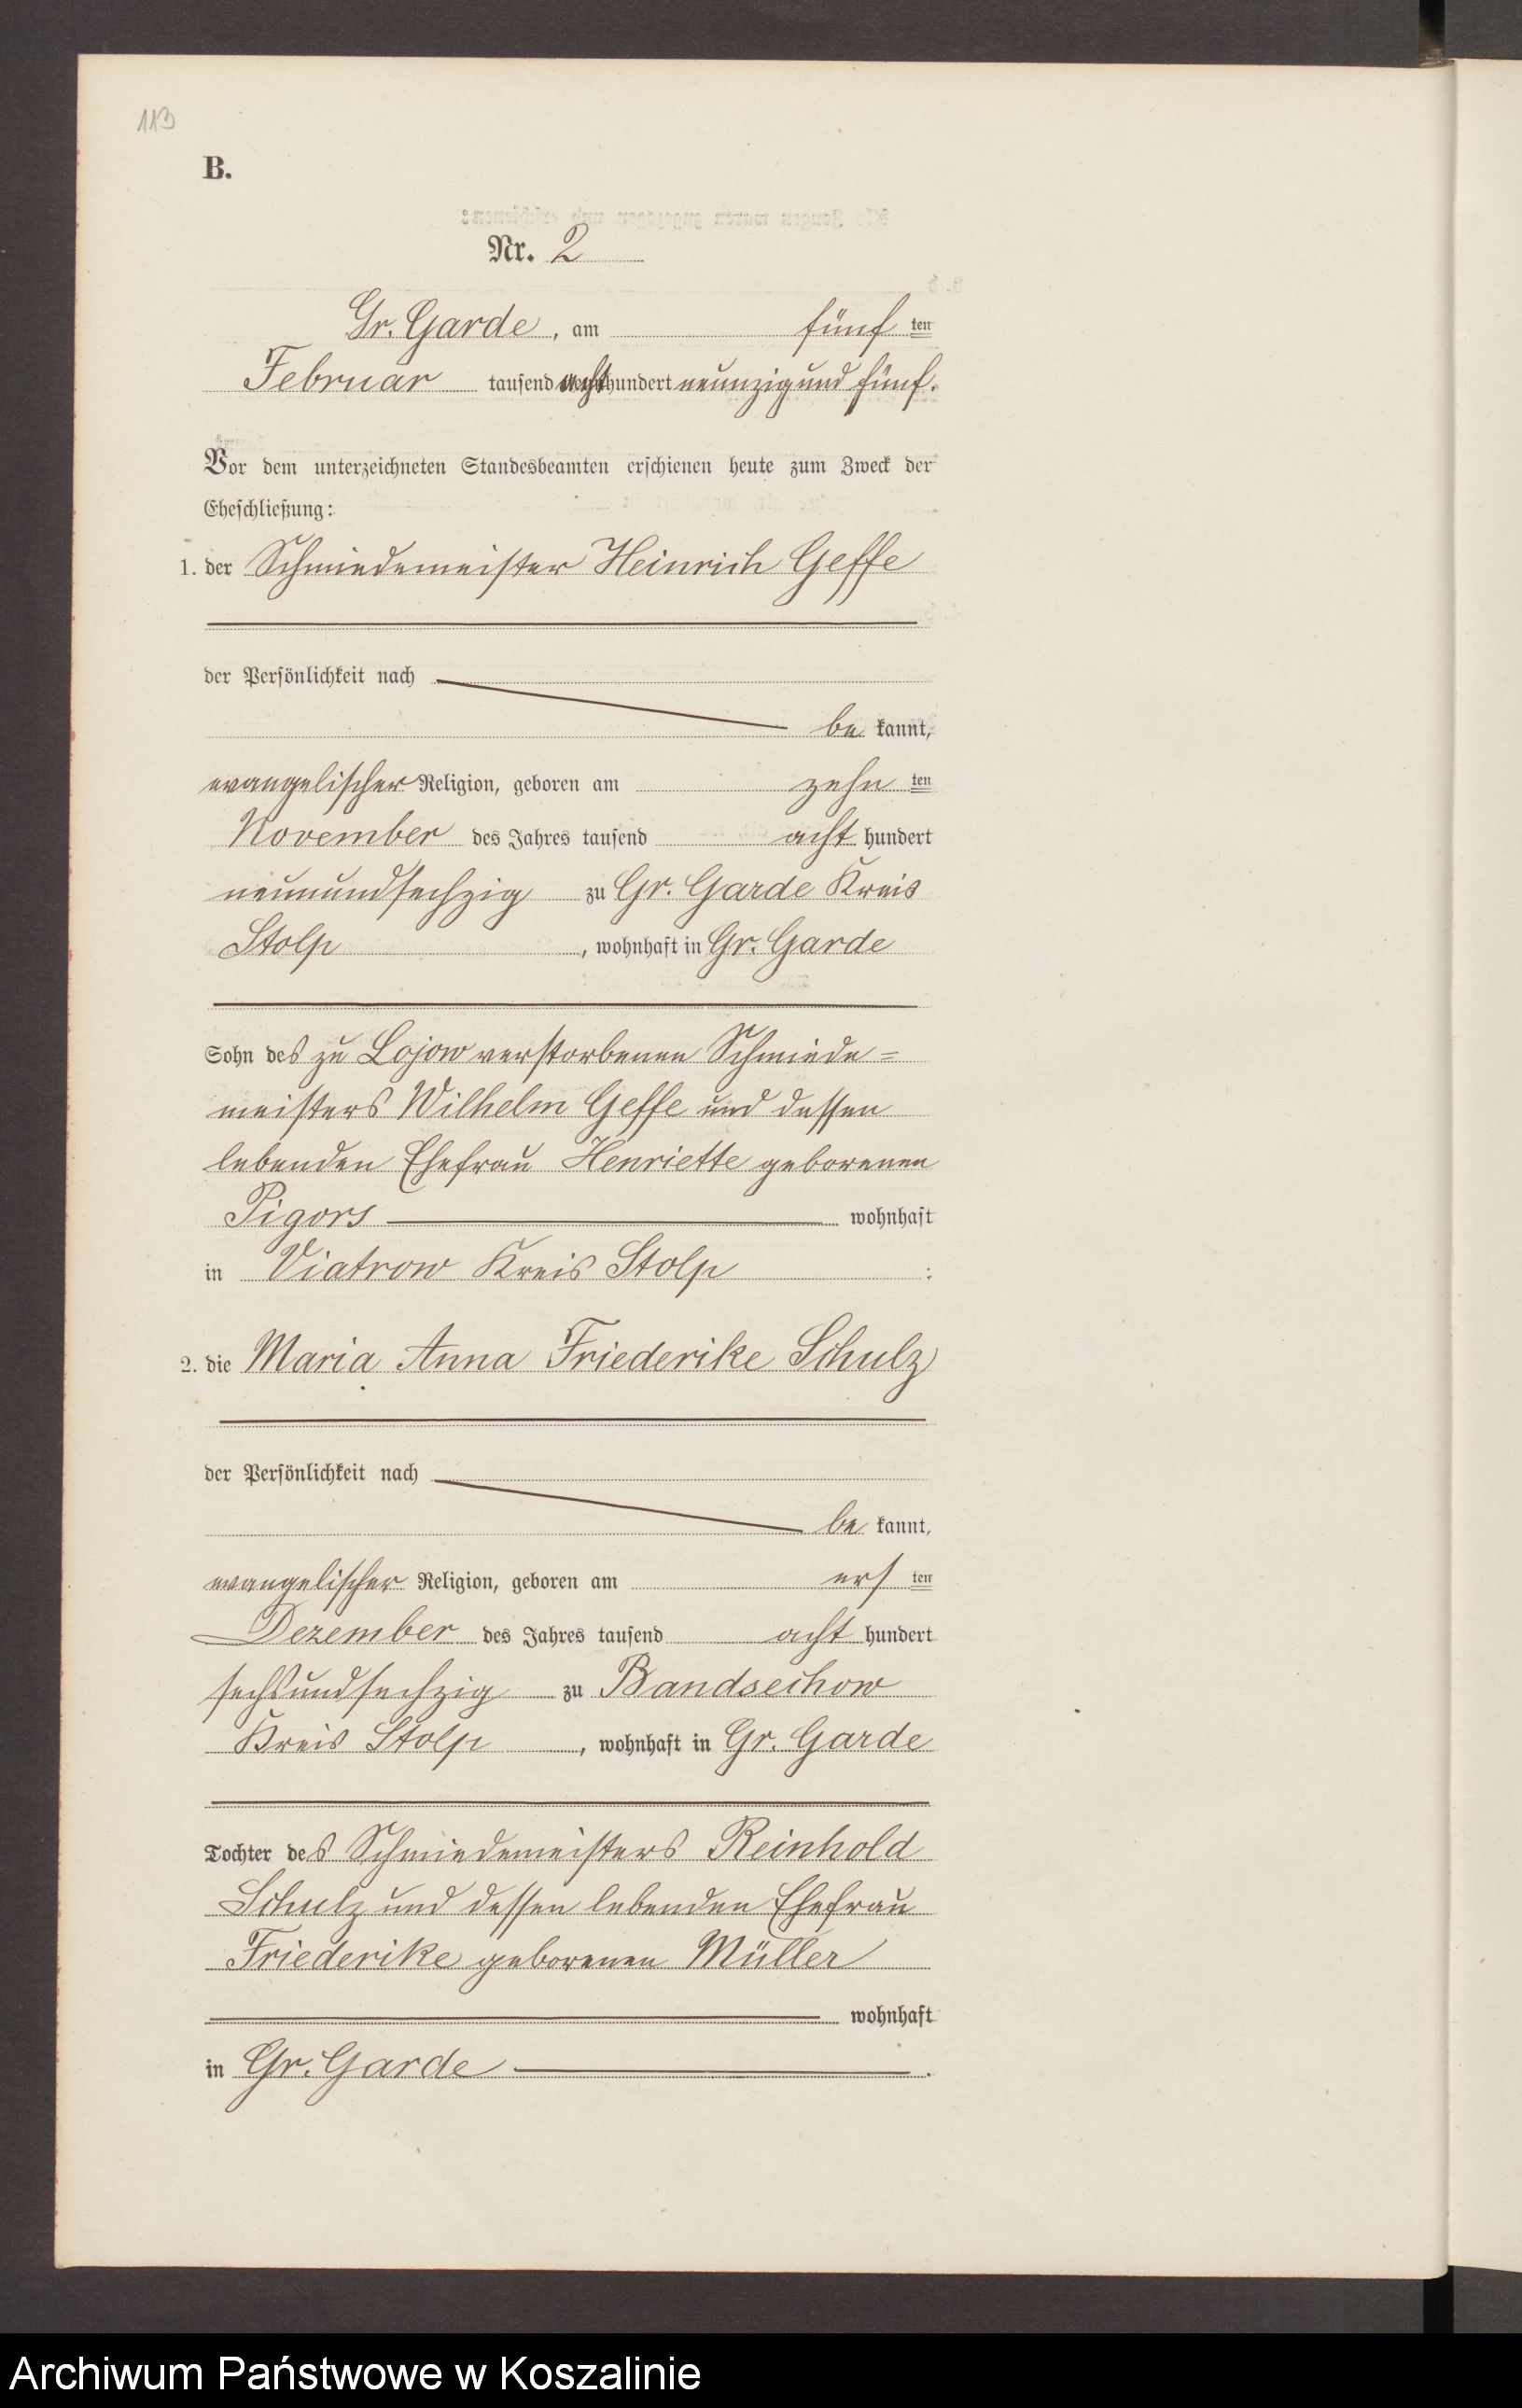 113
B.
Nr. 2
Gr. Garde, am fünf ten
Februar tausend acht hundert neunzig und fünf.
Vor dem unterzeichneten Standesbeamten erschienen heute zum Zweck der
Eheschließung:
1. der Schmiedemeister Heinrich Geffe
der Persönlichkeit nach
be kannt,
evangelischer Religion, geboren am zehn ten
November des Jahres tausend acht hundert
neunundsechzig zu Gr. Garde Kreis
Stolp, wohnhaft in Gr. Garde
Sohn des zu Lojow verstorbenen Schmiede=
meisters Wilhelm Geffe und dessen
lebenden Ehefrau Henriette geborenen
Pigors wohnhaft
in Viatrow Kreis Stolp :
2. die Maria Anna Friederike Schulz
der Persönlichkeit nach
be kannt,
evangelischer Religion, geboren am ers ten
Dezember des Jahres tausend acht hundert
sechsundsechzig zu Bandsechow
Kreis Stolp, wohnhaft in Gr. Garde
Tochter des Schmiedemeisters Reinhold
Schulz und dessen lebenden Ehefrau
Friederike geborenen Müller
wohnhaft
in Gr. Garde .
Archiwum Państwowe w Koszalinie